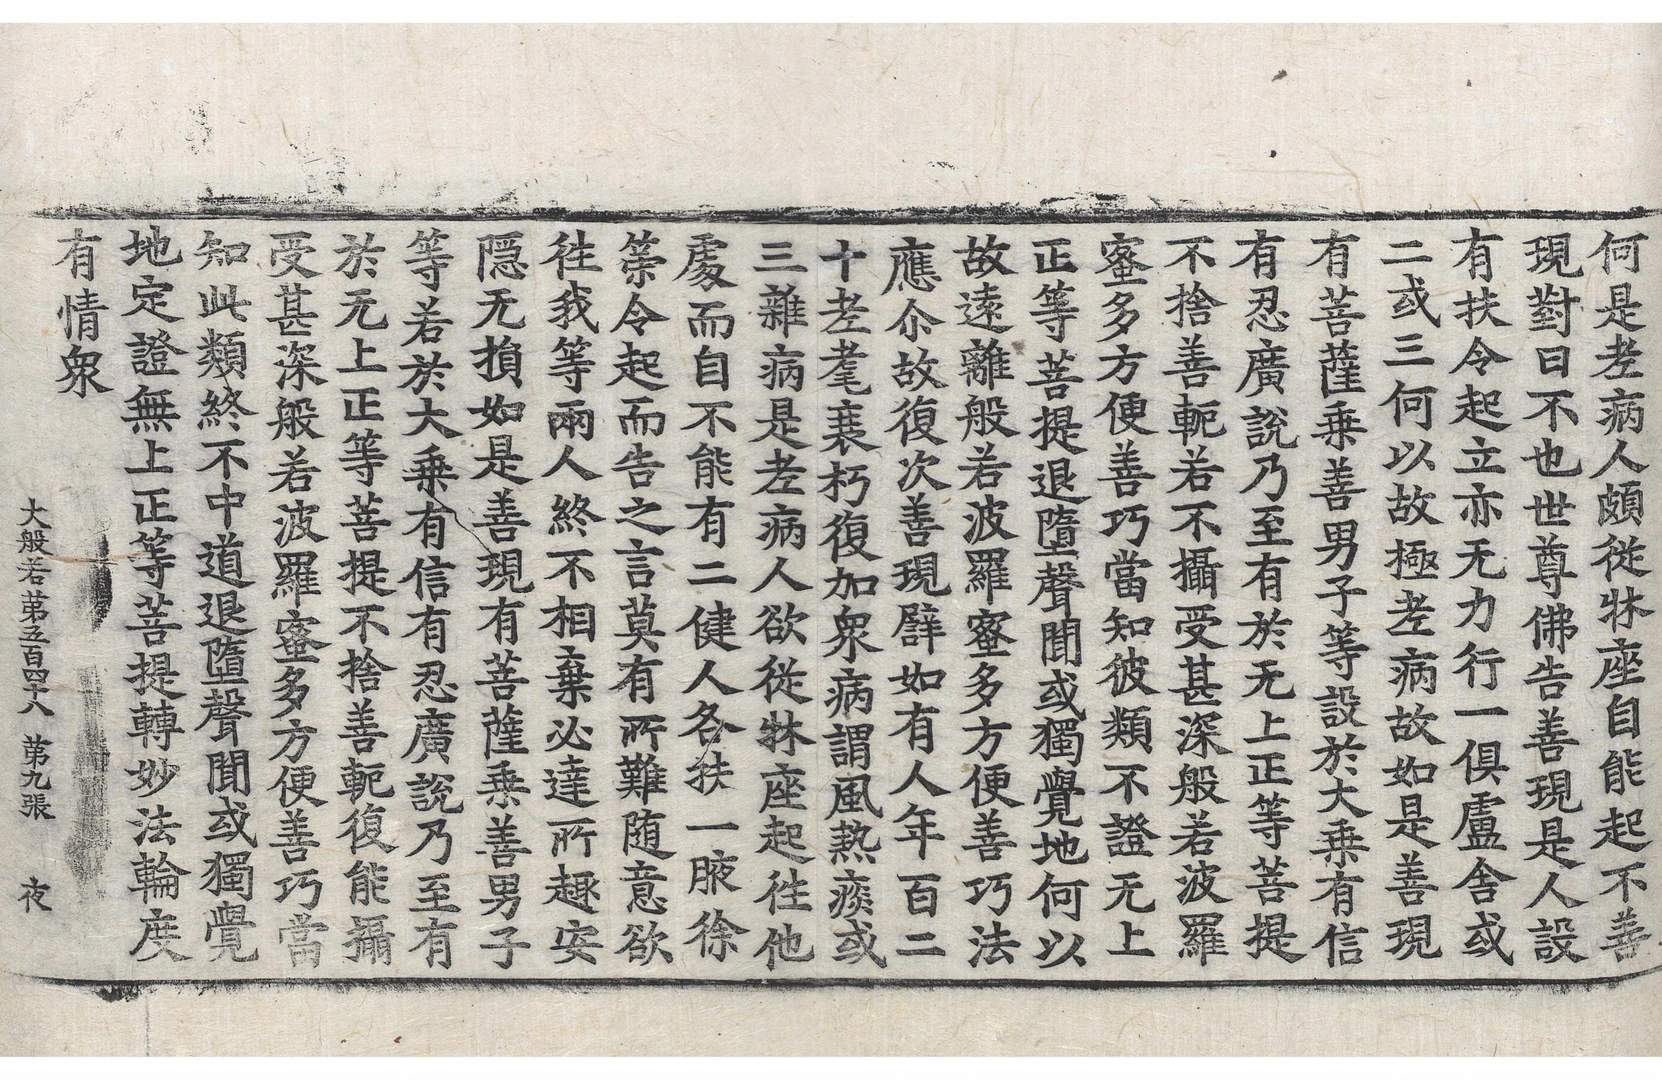 何是老病人頗從牀座自能起不善
現對曰不也世尊佛告善現是人設
有扶令起立亦无力行一俱盧舍或
二或三何以故極老病故如是善現
有菩薩乗善男子等設於大乗有信
有忍廣說乃至有於无上正等菩提
不捨善軛若不攝受甚深般若波羅
蜜多方便善巧當知彼類不證无上
正等菩提退墮聲聞或獨覺地何以
故遠離般若波羅蜜多方便善巧法
應尒故復次善現譬如有人年百二
十老耄衰朽復加衆病謂風熱痰或
三雜病是老病人欲從牀座起往他
處而自不能有二健人各扶一腋徐
䇿令起而告之言莫有所難随意欲
往我等兩人終不相棄必達所趣安
隱无損如是善現有菩薩乗善男子
等若於大乗有信有忍廣說乃至有
於无上正等菩提不捨善軛復能攝
受甚深般若波羅蜜多方便善巧當
知此類終不中道退墮聲聞或獨覺
地定證無上正等菩提轉妙法輪度
有情衆
大般若第五百四十八 第九張 夜